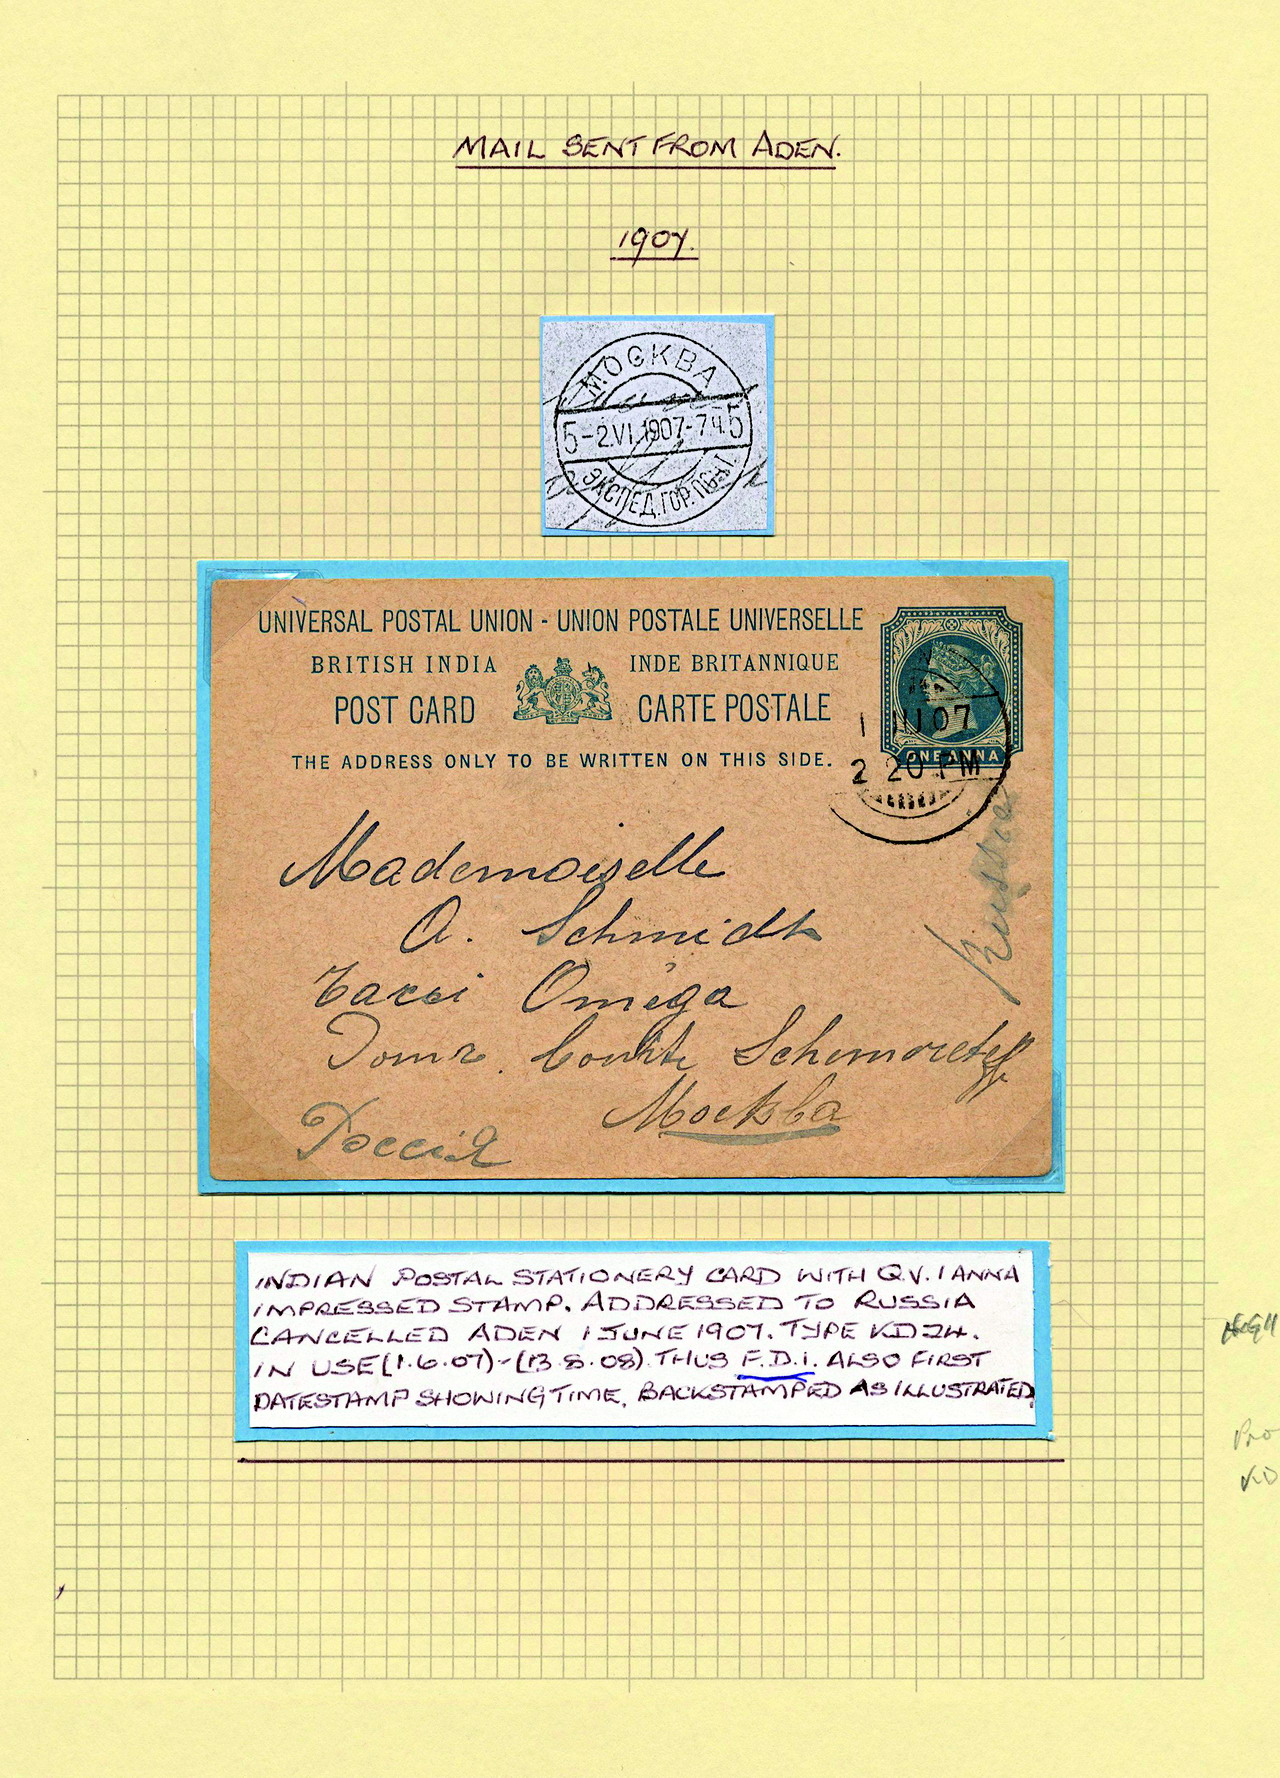 MAIL SENT FROM ADEN.
1907.
МОСКВА
5-2.VI.1907-7Ч.5
ЭКСПЕД.ГОР.ПОЧТ.
UNIVERSAL POSTAL UNION - UNION POSTALE UNIVERSELLE
BRITISH INDIA INDE BRITANNIQUE
POST CARD CARTE POSTALE
THE ADDRESS ONLY TO BE WRITTEN ON THIS SIDE.
ONE ANNA
1 JU 07
2 20 PM
Russia
Mademoiselle
A. Schmidt
Omega
Comte
Москва
Россія
INDIAN POSTAL STATIONERY CARD WITH Q.V. 1 ANNA
IMPRESSED STAMP. ADDRESSED TO RUSSIA
CANCELLED ADEN 1 JUNE 1907. TYPE KD24.
IN USE (1.6.07)-(13.8.08) THUS F.D.I. ALSO FIRST
DATESTAMP SHOWING TIME. BACKSTAMPED AS ILLUSTRATED.
Pro
KD